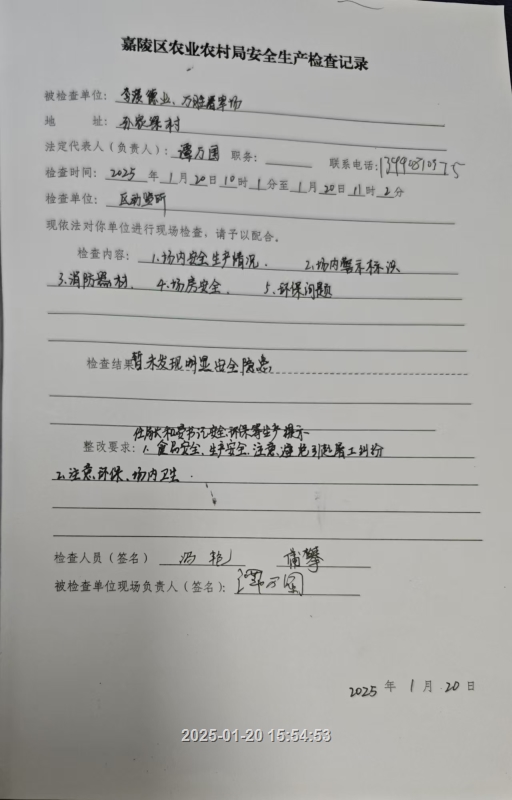 嘉陵区农业农村局安全生产检查记录
被检查单位：李渡 业、万 畜 场
地 址： 村
法定代表人（负责人）：谭万国 职务： 联系电话：
检查时间：2025 年 1 月 20 日 10 时 1 分至 1 月 20 日 11 时 2 分
检查单位：区动监所
现依法对你单位进行现场检查，请予以配合。
检查内容：1.场内安全生产情况. 2.场内警示标识
3.消防器材. 4.场房安全. 5.环保问题
检查结果暂未发现明显安全隐患
任局长和 书记安全环保等生产提示
整改要求：1.食品安全、生产安全、注意避免引起用工纠纷
2.注意环保、场内卫生.
检查人员（签名） 冯艳 蒲攀
被检查单位现场负责人（签名）：谭万国
2025 年 1 月 20 日
2025-01-20 15:54:53